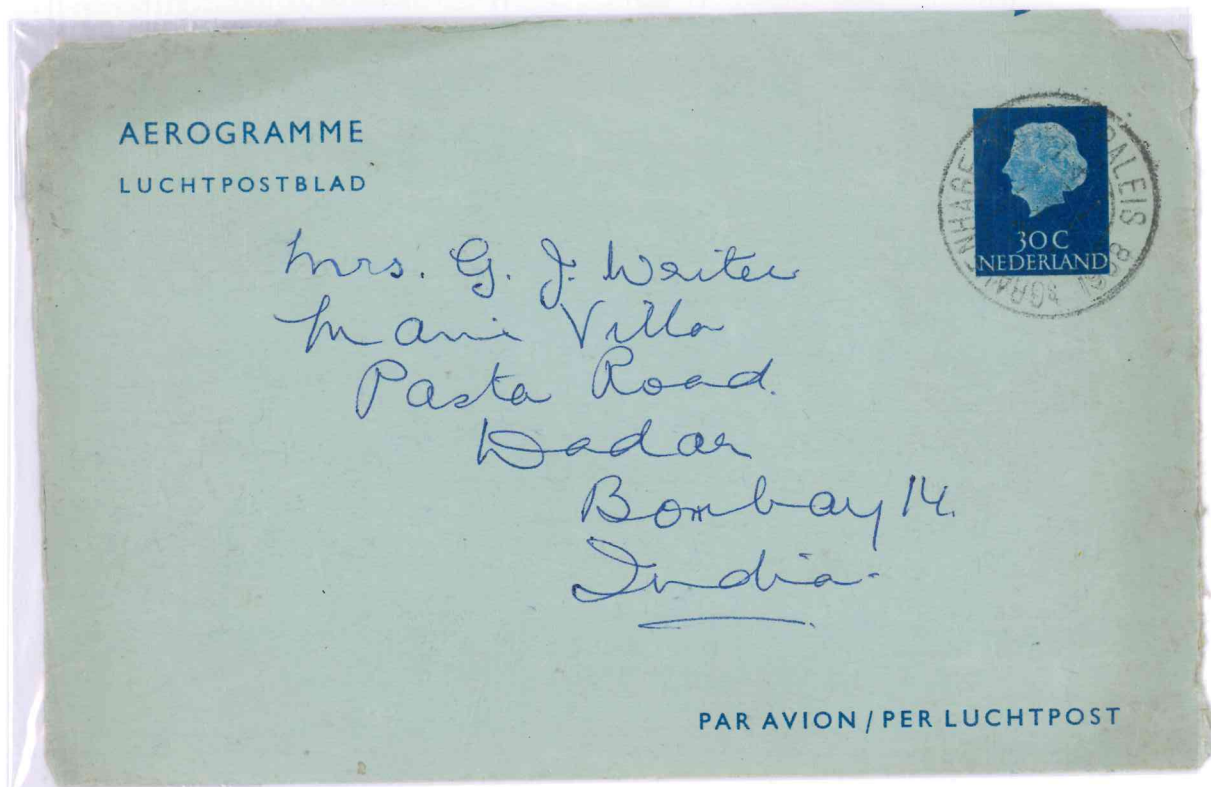 AEROGRAMME
LUCHTPOSTBLAD
30 C
NEDERLAND
Mrs. G. J. Writer
Mani Villa
Pasta Road.
Dadar
Bombay 14.
India.
PAR AVION / PER LUCHTPOST